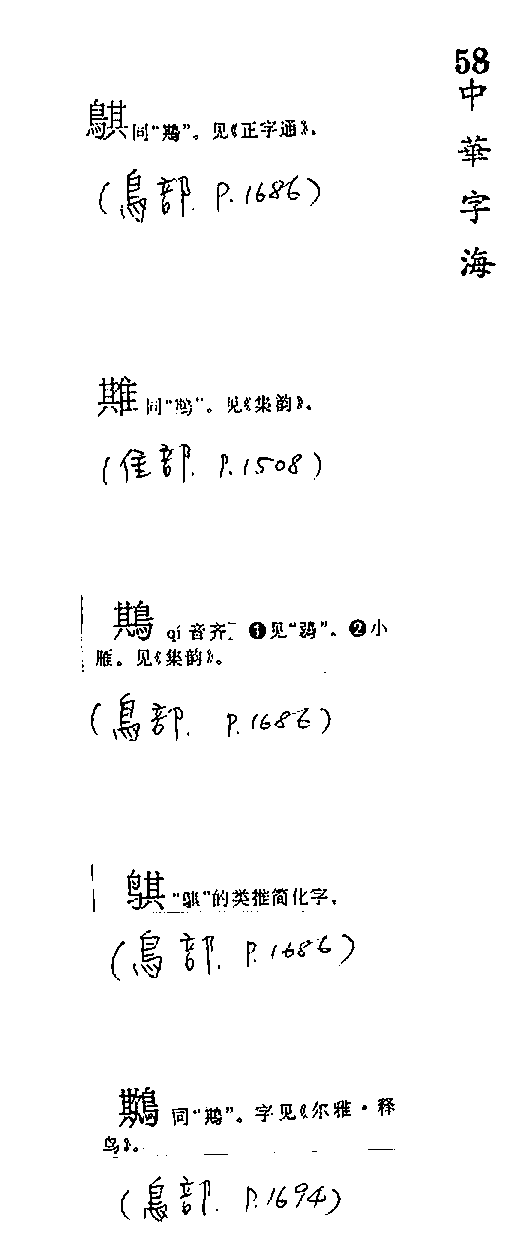 58
中華字海
䳢同“鶀”。见《正字通》。
(鳥部. P.1686)
同“鶀”。见《集韵》。
(隹部. P.1508)
鶀 qí 音齐 ❶见“鵋”。❷小
雁。见《集韵》。
(鳥部. P.1686)
的类推简化字。
(鳥部. P.1686)
同“鶀”。字见《尔雅·释
鸟》。
(鳥部. P.1694)